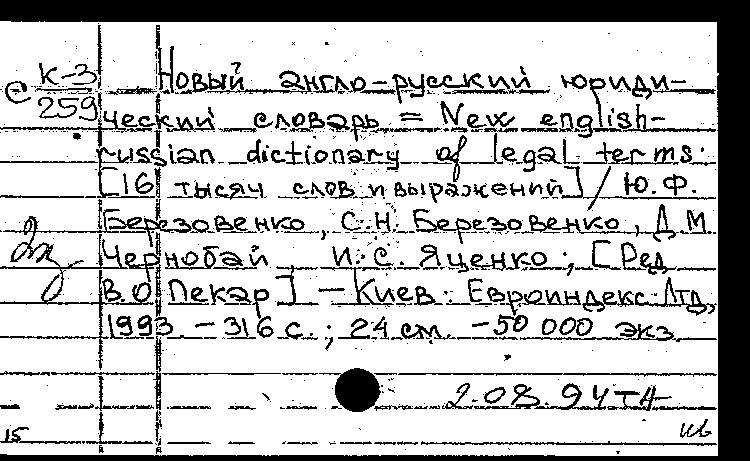 е К-3
259
Новый англо-русский юриди-
ческий словарь = New english-
russian dictionary of legal terms:
[16 тысяч слов и выражений] / Ю.Ф.
Березовенко, С.Н. Березовенко, Д.М.
Чернобай, И.С. Яценко; [Ред.
В.О. Пекар] – Киев: Евроиндекс Лтд,
1993 – 316 с.; 24 см. – 50 000 экз.
2.08.94
15